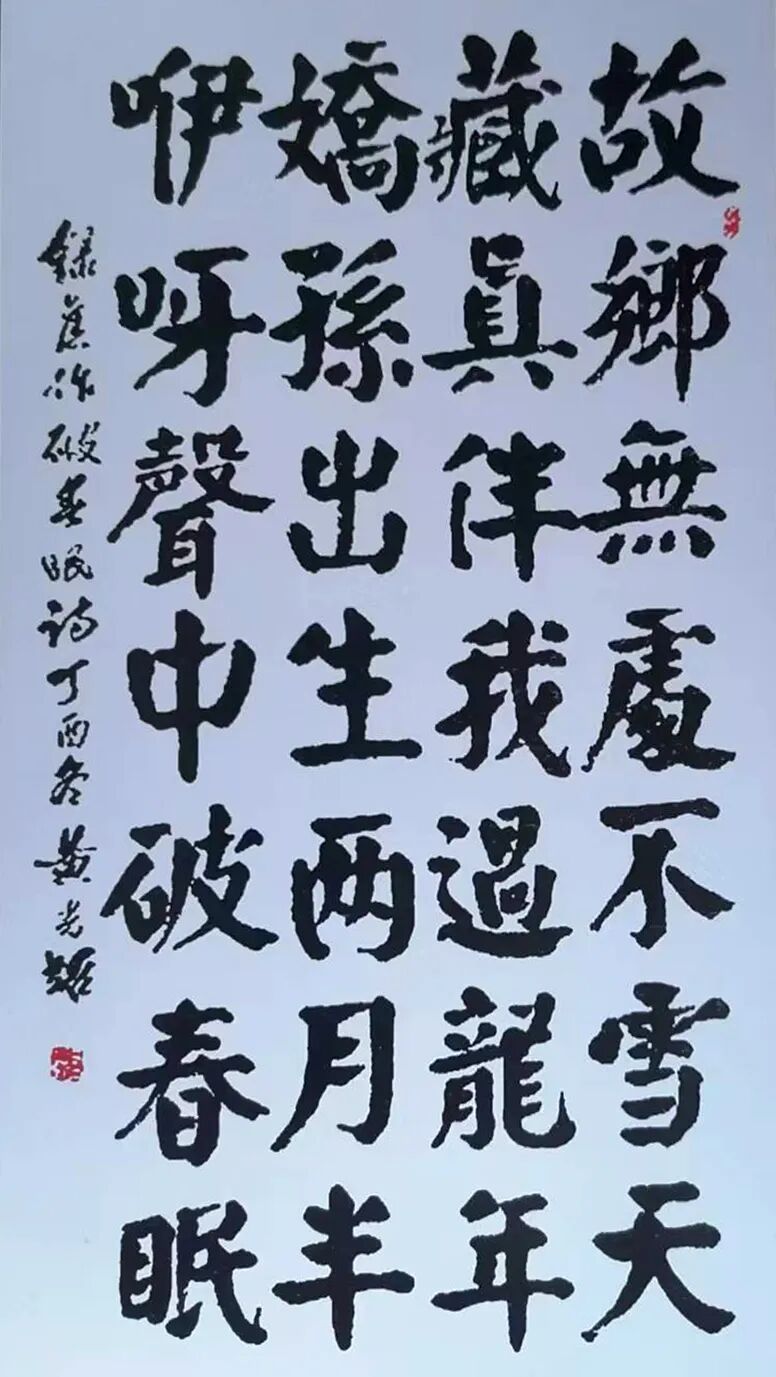 故鄉無處不雪天
藏真伴我過龍年
嬌孫出生两月半
咿呀聲中破春眠
録舊作破春眠詩丁酉冬黄光耀